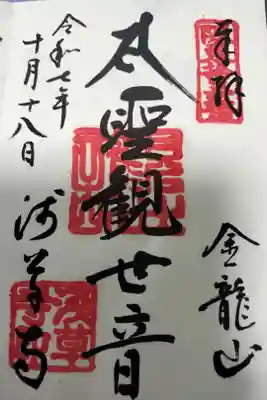 奉拝
金龍山
聖観世音
令和七年
十月十八日
浅草寺